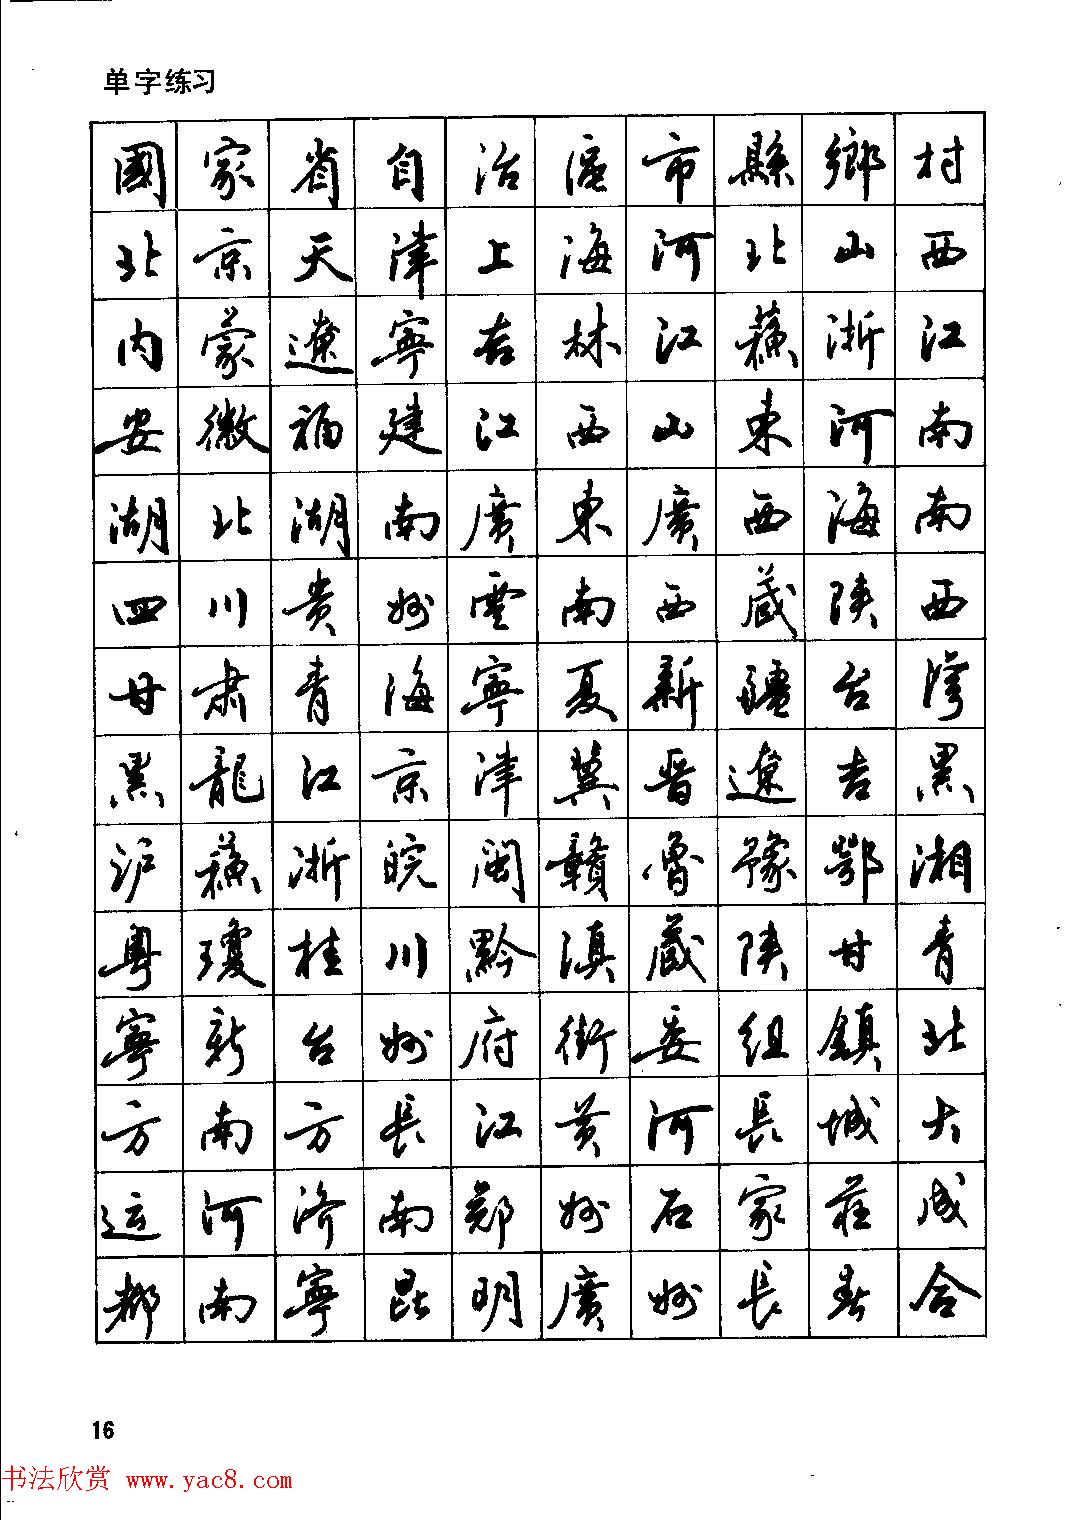 单字练习
國家省自治區市縣鄉村
北京天津上海河北山西
内蒙遼寧吉林江蘇浙江
安徽福建江西山東河南
湖北湖南廣東廣西海南
四川贵州雲南西藏陕西
甘肃青海寧夏新疆台灣
黑龍江京津冀晋遼吉黑
沪蘇浙皖闽赣魯豫鄂湘
粤瓊桂川黔滇藏陕甘青
寧新台州府街委組鎮北
方南方長江黄河長城大
运河济南郑州石家莊成
都南寧昆明廣州長春合
16
书法欣赏 www.yac8.com